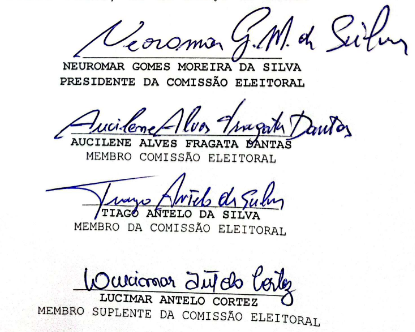 Neuromar G. M. da Silva
NEUROMAR GOMES MOREIRA DA SILVA
PRESIDENTE DA COMISSÃO ELEITORAL
Aucilene Alves Fragata Dantas
AUCILENE ALVES FRAGATA DANTAS
MEMBRO COMISSÃO ELEITORAL
Tiago Antelo da Silva
TIAGO ANTELO DA SILVA
MEMBRO DA COMISSÃO ELEITORAL
Lucimar Antelo Cortez
LUCIMAR ANTELO CORTEZ
MEMBRO SUPLENTE DA COMISSÃO ELEITORAL